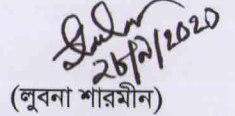 ২৮/৯/২০২০
(লুবনা শারমীন)